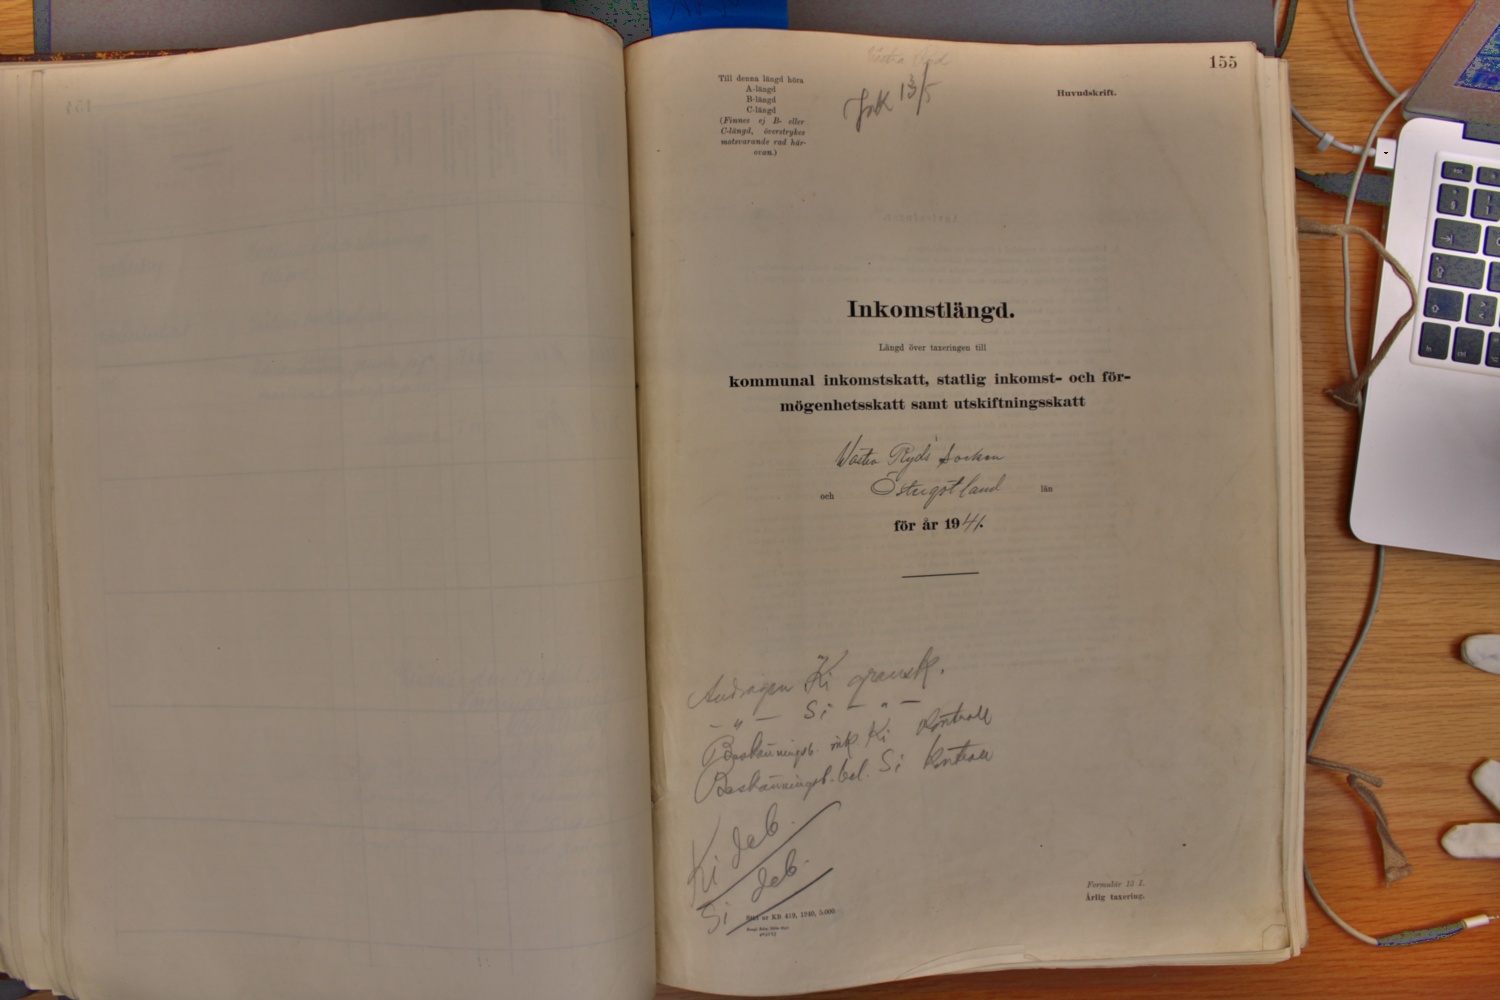 155
Till denna längd höra
A-längd
B-längd
C-längd
(Finnes ej B- eller
C-längd, överstrykes
motsvarande rad här-
ovan.)
13/5
Huvudskrift.
Inkomstlängd.
Längd över taxeringen till
kommunal inkomstskatt, statlig inkomst- och för-
mögenhetsskatt samt utskiftningsskatt
Västra Ryds socken
och Östergötland län
för år 1941.
Ki gransk.
— „ — Si — „ —
Beskattningsb. ink Ki kontroll
Beskattningsb. bel. Si kontroll
Ki deb.
Si deb.
KB 419, 1940, 5.000.
Formulär 15 I.
Årlig taxering.